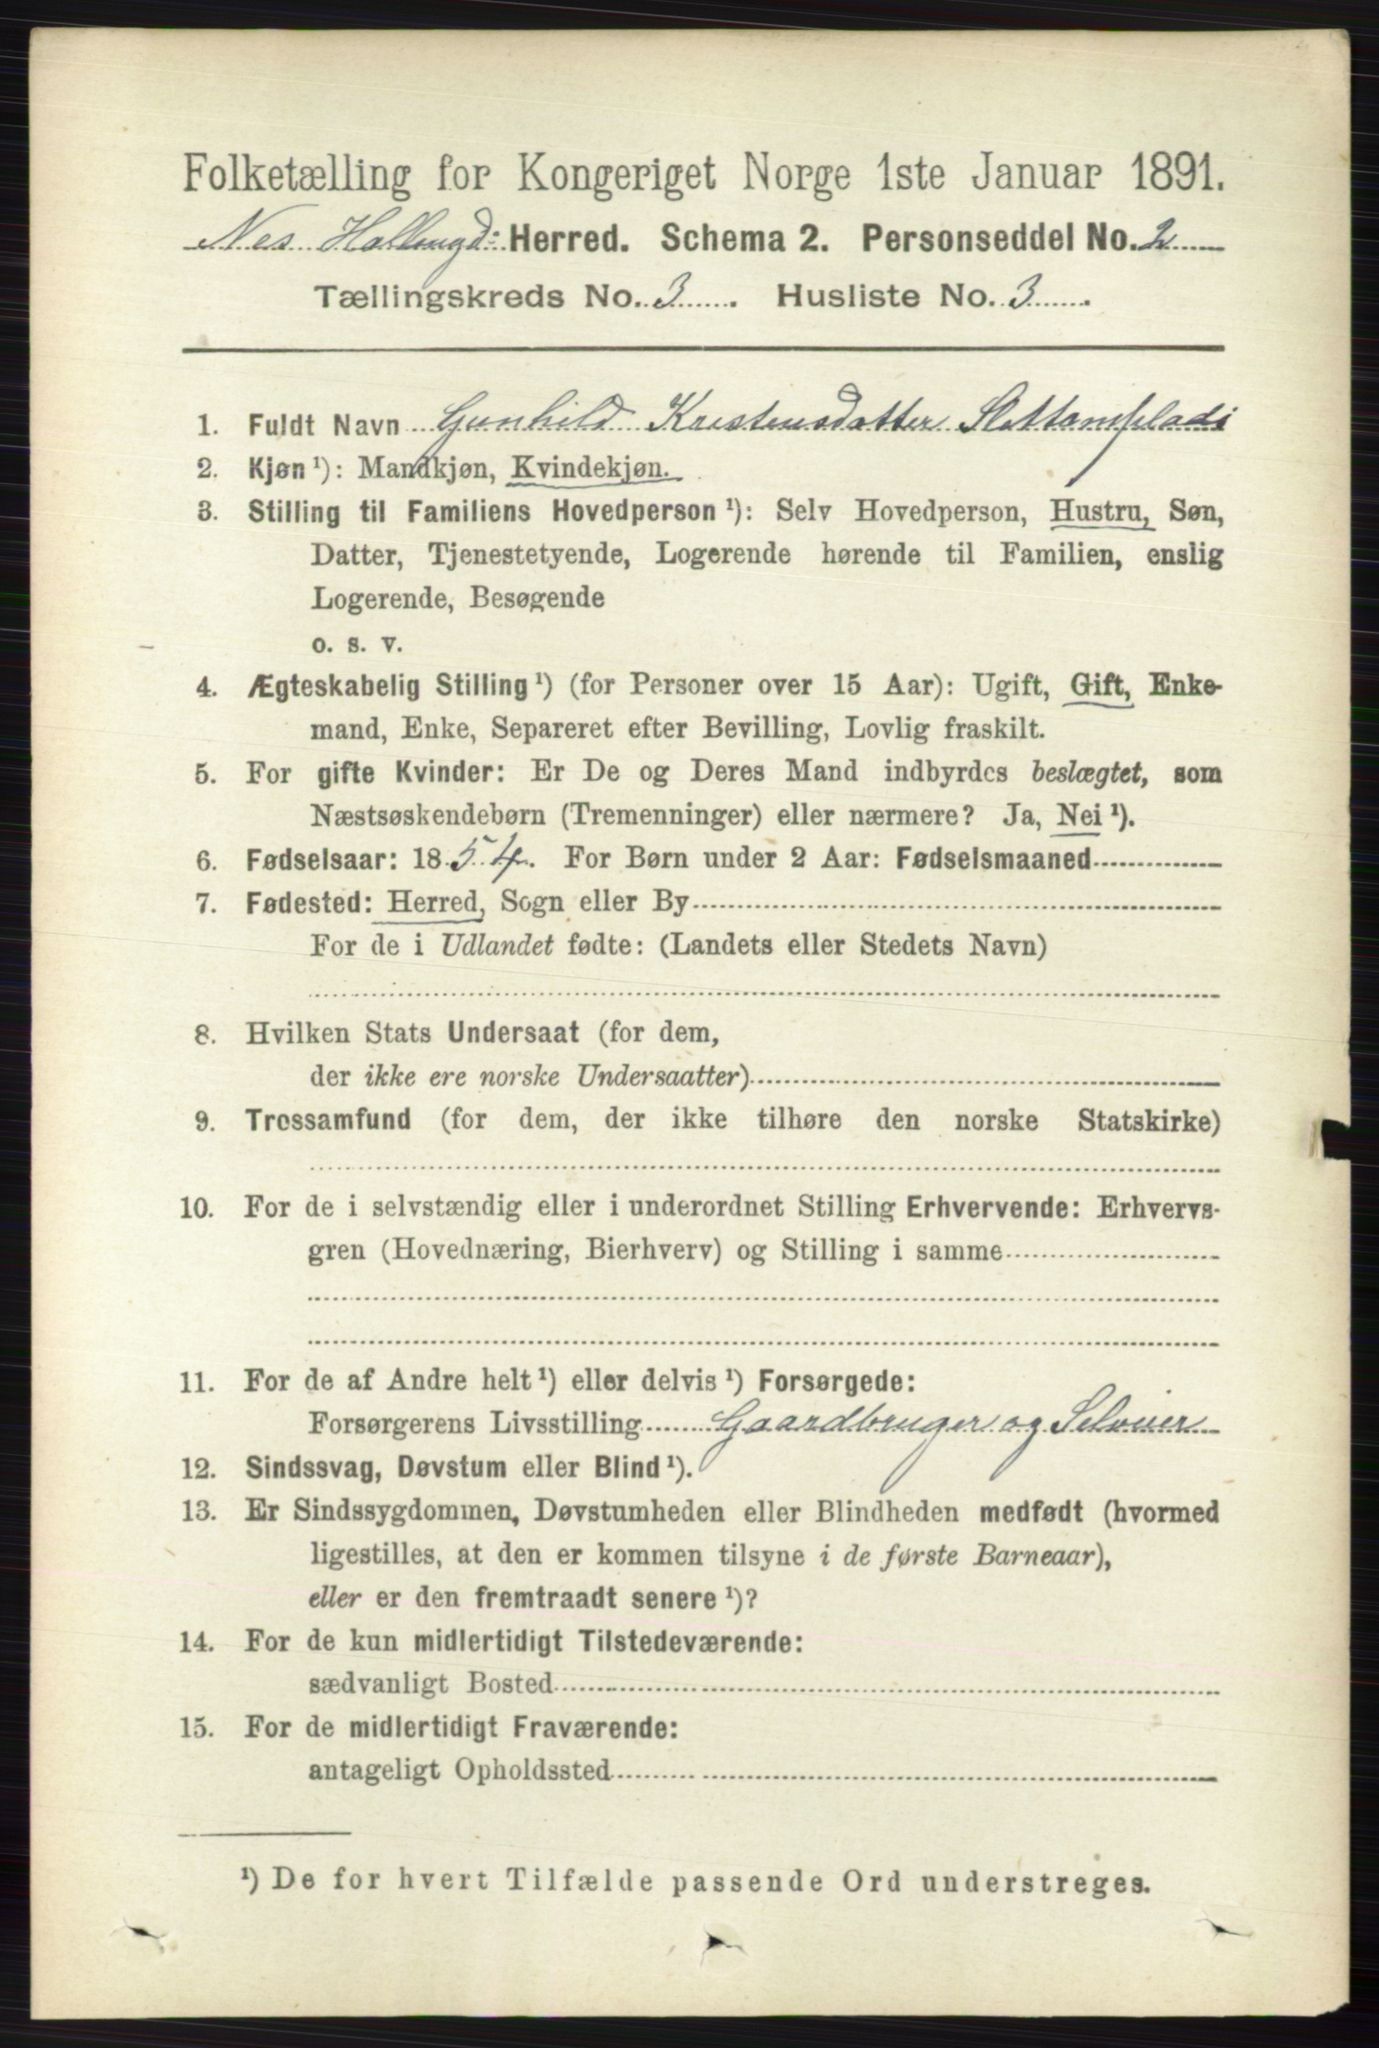 Folketælling for Kongeriget Norge 1ste Januar 1891.
Nes Herred. Schema 2. Personseddel No. 2
Tællingskreds No. 3. Husliste No. 3.
1. Fuldt Navn Gunhild Kristensdatter
2. Kjøn ¹): Mandkjøn, Kvindekjøn.
3. Stilling til Familiens Hovedperson ¹): Selv Hovedperson, Hustru, Søn,
Datter, Tjenestetyende, Logerende hørende til Familien, enslig
Logerende, Besøgende
o. s. v.
4. Ægteskabelig Stilling ¹) (for Personer over 15 Aar): Ugift, Gift, Enke-
mand, Enke, Separeret efter Bevilling, Lovlig fraskilt.
5. For gifte Kvinder: Er De og Deres Mand indbyrdes beslægtet, som
Næstsøskendebørn (Tremenninger) eller nærmere? Ja, Nei ¹).
6. Fødselsaar: 1854. For Børn under 2 Aar: Fødselsmaaned
7. Fødested: Herred, Sogn eller By
For de i Udlandet fødte: (Landets eller Stedets Navn)
8. Hvilken Stats Undersaat (for dem,
der ikke ere norske Undersaatter)
9. Trossamfund (for dem, der ikke tilhøre den norske Statskirke)
10. For de i selvstændig eller i underordnet Stilling Erhvervende: Erhvervs-
gren (Hovednæring, Bierhverv) og Stilling i samme
11. For de af Andre helt ¹) eller delvis ¹) Forsørgede:
Forsørgerens Livsstilling Gaardbruger og Selveier
12. Sindssvag, Døvstum eller Blind ¹).
13. Er Sindssygdommen, Døvstumheden eller Blindheden medfødt (hvormed
ligestilles, at den er kommen tilsyne i de første Barneaar),
eller er den fremtraadt senere ¹)?
14. For de kun midlertidigt Tilstedeværende:
sædvanligt Bosted
15. For de midlertidigt Fraværende:
antageligt Opholdssted
¹) De for hvert Tilfælde passende Ord understreges.